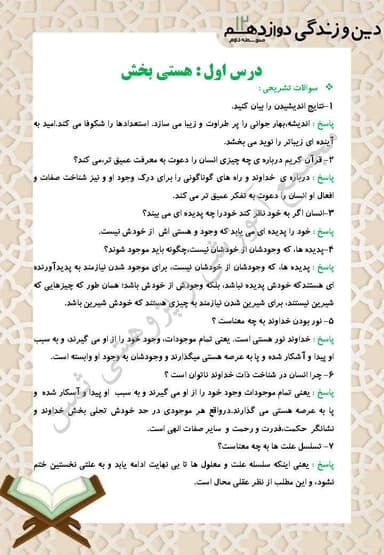 دین و زندگی دوازدهم ۱۲
متوسطه دوم
درس اول : هستی بخش
سوالات تشریحی :
۱-نتایج اندیشیدن را بیان کنید.
پاسخ : اندیشه،بهار جوانی را پر طراوت و زیبا می سازد. استعدادها را شکوفا می کند.امید به
آینده ای زیباتر را نوید می بخشد.
۲- قرآن کریم درباره ی چه چیزی انسان را دعوت به معرفت عمیق تر،می کند؟
پاسخ : درباره ی خداوند و راه های گوناگونی را برای درک وجود او و نیز شناخت صفات و
افعال او انسان را دعوت به تفکر عمیق تر می کند.
۳-انسان اگر به خود نظر کند خودرا چه پدیده ای می بیند؟
پاسخ : خود را پدیده ای می یابد که وجود و هستی اش از خودش نیست.
۴-پدیده ها، که وجودشان از خودشان نیست،چگونه باید موجود شوند؟
پاسخ : پدیده ها، که وجودشان از خودشان نیست، برای موجود شدن نیازمند به پدیدآورنده
ای هستندکه خودش پدیده نباشد، بلکه وجودش از خودش باشد؛ همان طور که چیزهایی که
شیرین نیستند، برای شیرین شدن نیازمند به چیزی هستند که خودش شیرین باشد.
۵- نور بودن خداوند به چه معناست ؟
پاسخ : خداوند نور هستی است. یعنی تمام موجودات، وجود خود را از او می گیرند، و به سبب
او پیدا و آشکار شده و پا به عرصه هستی میگذارند و وجودشان به وجود او وابسته است.
۶- چرا انسان در شناخت ذات خداوند ناتوان است ؟
پاسخ : یعنی تمام موجودات وجود خود را از او می گیرند و به سبب او پیدا و آسکار شده و
پا به عرصه هستی می گذارند.درواقع هر موجودی در حد خودش تجلی بخش خداوند و
نشانگر حکمت،قدرت و رحمت و سایر صفات الهی است.
۷- تسلسل علت ها به چه معناست؟
پاسخ : یعنی اینکه سلسله علت و معلول ها تا بی نهایت ادامه یابد و به علتی نخستین ختم
نشود، و این مطلب از نظر عقلی محال است.